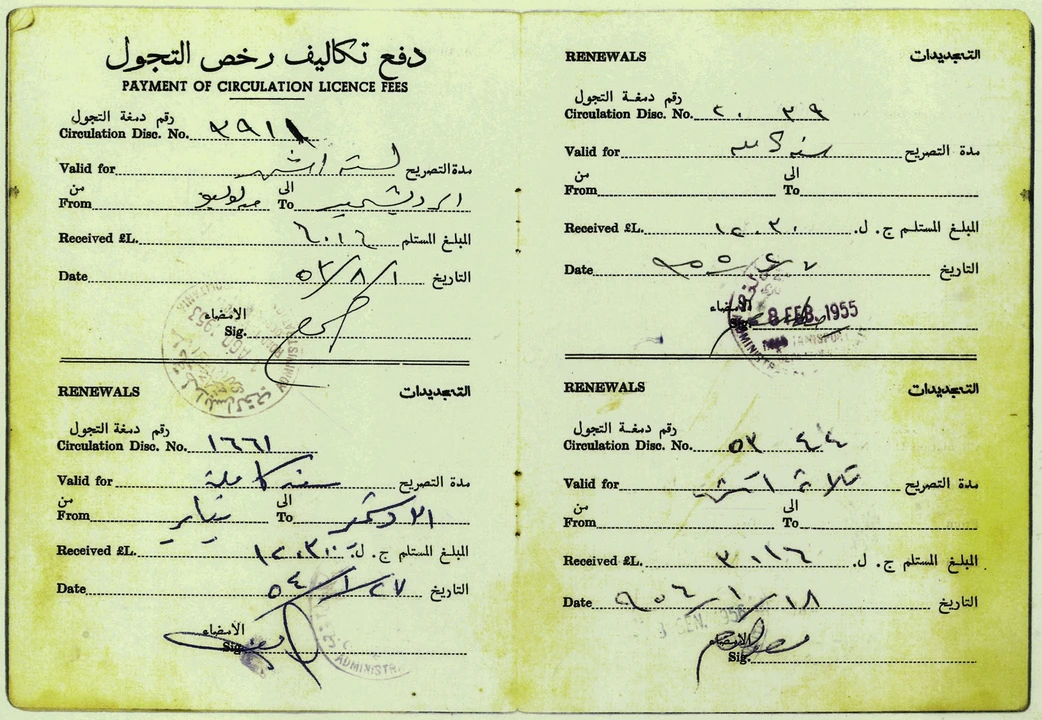 دفع تكاليف رخص التجول
PAYMENT OF CIRCULATION LICENCE FEES
رقم دمغة التجول
Circulation Disc. No. ٣٩١١
Valid for لستة اشهر مدة التصريح
من الى
From يوليو To ٣١ ديسمبر
Received £L. ٦.١٦ المبلغ المستلم
Date ٥٣/٨/١ التاريخ
الامضاء
Sig.
RENEWALS التجديدات
رقم دمغة التجول
Circulation Disc. No. ١٦٦١
Valid for سنة كاملة مدة التصريح
من الى
From يناير To ٣١ دسمبر
Received £L. ١٢.٣٠٠ المبلغ المستلم ج. ل.
Date ٥٤/١/٢٧ التاريخ
الامضاء
Sig.
ADMINISTR
RENEWALS التجديدات
رقم دمغة التجول
Circulation Disc. No. ٢٠٣٩
Valid for سنة كاملة مدة التصريح
من الى
From To
Received £L. ١٢.٣٠٠ المبلغ المستلم ج. ل.
Date ٩٥٥/٢/٧ التاريخ
الامضاء
8 FEB. 1955
RENEWALS التجديدات
رقم دمغة التجول
Circulation Disc. No. ٥٣٤٤
Valid for ثلاثة اشهر مدة التصريح
من الى
From To
Received £L. ٣.١١٦ المبلغ المستلم ج. ل.
Date ٩٥٦/١/١٨ التاريخ
الامضاء
Sig.